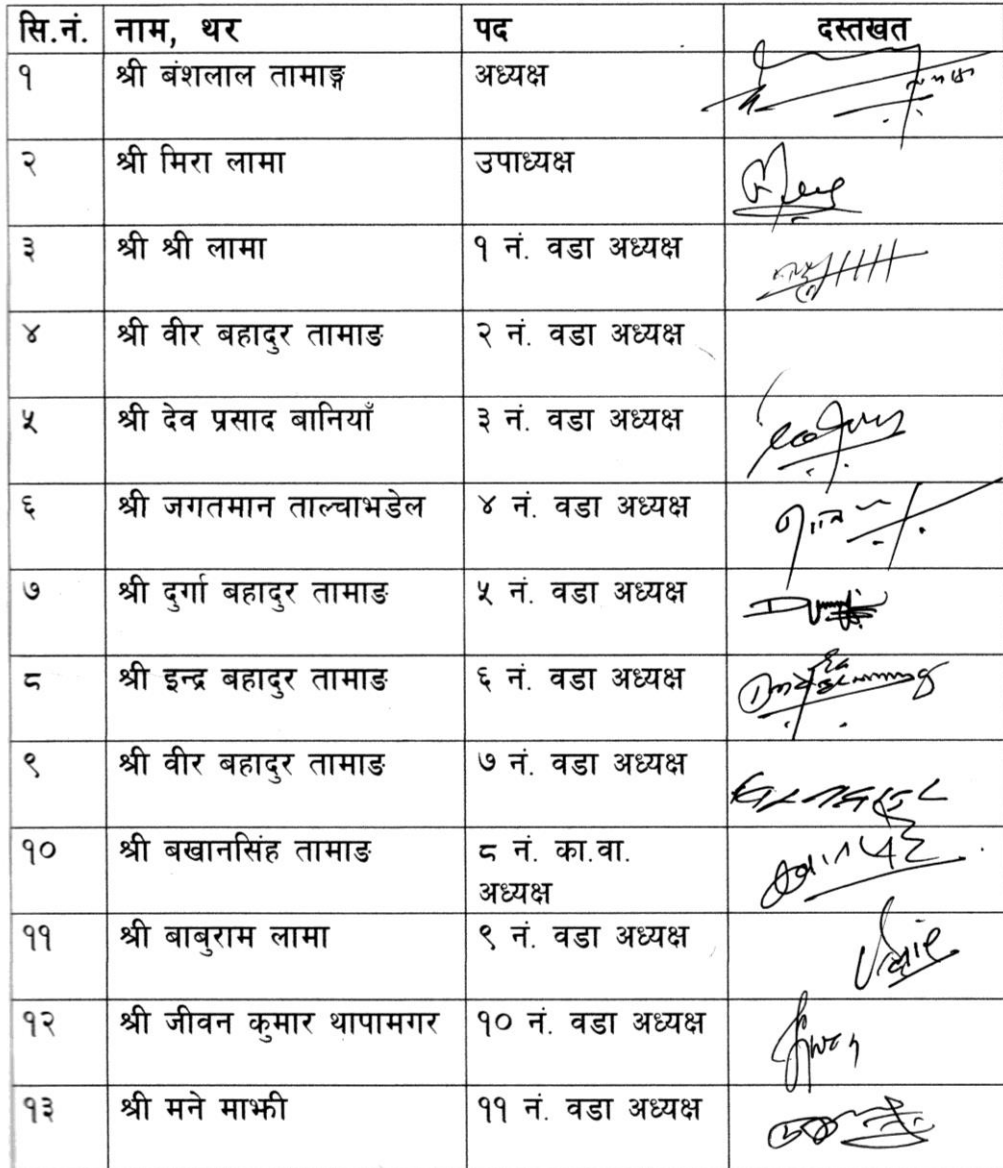 सि.नं. नाम, थर पद दस्तखत
१ श्री बंशलाल तामाङ्ग अध्यक्ष
२ श्री मिरा लामा उपाध्यक्ष
३ श्री श्री लामा १ नं. वडा अध्यक्ष
४ श्री वीर बहादुर तामाङ २ नं. वडा अध्यक्ष
५ श्री देव प्रसाद बानियाँ ३ नं. वडा अध्यक्ष
६ श्री जगतमान ताल्चाभडेल ४ नं. वडा अध्यक्ष
७ श्री दुर्गा बहादुर तामाङ ५ नं. वडा अध्यक्ष
८ श्री इन्द्र बहादुर तामाङ ६ नं. वडा अध्यक्ष
९ श्री वीर बहादुर तामाङ ७ नं. वडा अध्यक्ष
१० श्री बखानसिंह तामाङ ८ नं. का.वा.
अध्यक्ष
११ श्री बाबुराम लामा ९ नं. वडा अध्यक्ष
१२ श्री जीवन कुमार थापामगर १० नं. वडा अध्यक्ष
१३ श्री मने माझी ११ नं. वडा अध्यक्ष